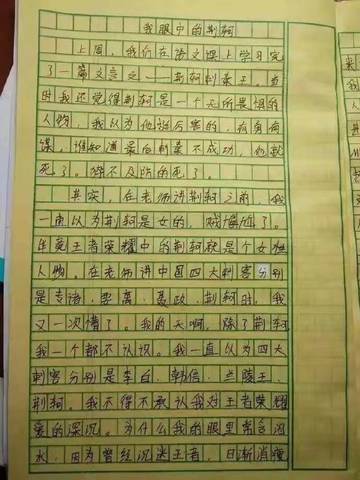 我眼中的荆轲
上周，我们在语文课上学习完
了一篇文言文——荆轲刺秦王。当
时我还觉得荆轲是一个无所畏惧的
人物，我认为他挺厉害的，有勇有
谋，谁知道最后刺秦不成功，他就
死了。猝不及防的死了。
其实，在老师讲荆轲之前，我
一直以为荆轲是女的，贼尴尬了。
毕竟王者荣耀中的荆轲就是个女性
人物。在老师讲中国四大刺客分别
是专诸，要离，聂政，荆轲时，我
又一次懵了。我的天啊，除了荆轲
我一个都不认识。我一直以为四大
刺客分别是李白，韩信，兰陵王，
荆轲。我不得不承认我对王者荣耀
爱的深沉。为什么我的眼里常含泪
水，因为曾经沉迷王者，日渐消瘦